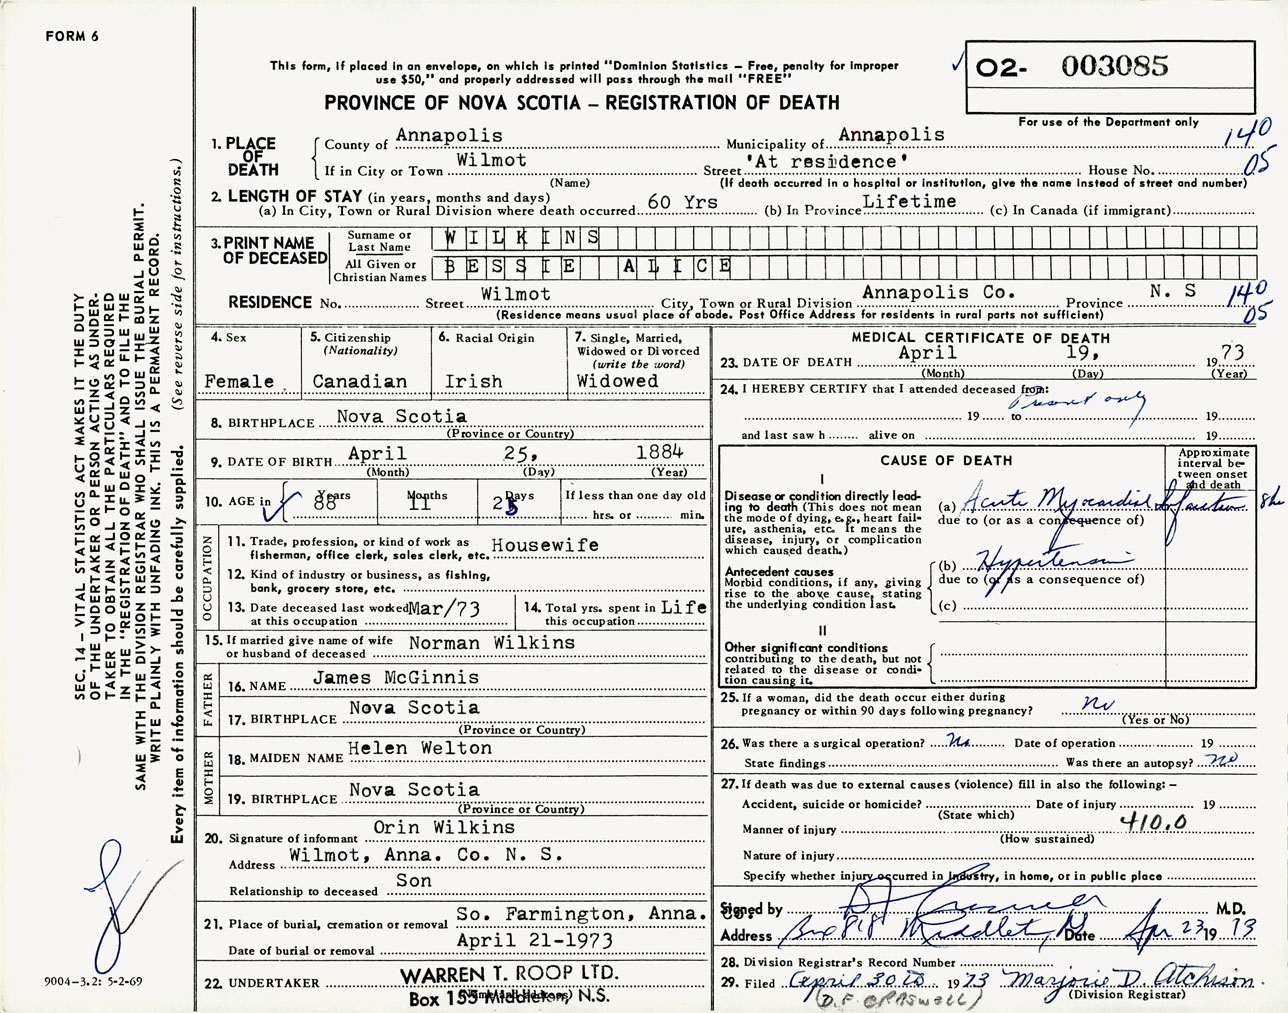 FORM 6
This form, if placed in an envelope, on which is printed "Dominion Statistics – Free, penalty for improper
use $50," and properly addressed will pass through the mail "FREE"
PROVINCE OF NOVA SCOTIA – REGISTRATION OF DEATH
O2- 003085
For use of the Department only
1. PLACE OF DEATH
County of Annapolis Municipality of Annapolis 140
If in City or Town Wilmot Street 'At residence' House No. 05
(Name) (If death occurred in a hospital or institution, give the name instead of street and number)
2. LENGTH OF STAY (in years, months and days)
(a) In City, Town or Rural Division where death occurred 60 Yrs (b) In Province Lifetime (c) In Canada (if immigrant)
3. PRINT NAME OF DECEASED
Surname or Last Name WILKINS
All Given or Christian Names BESSIE ALICE
RESIDENCE No. Street Wilmot City, Town or Rural Division Annapolis Co. Province N. S 140
(Residence means usual place of abode. Post Office Address for residents in rural parts not sufficient) 05
4. Sex
Female
5. Citizenship
(Nationality)
Canadian
6. Racial Origin
Irish
7. Single, Married,
Widowed or Divorced
(write the word)
Widowed
8. BIRTHPLACE Nova Scotia
(Province or Country)
9. DATE OF BIRTH April 25, 1884
(Month) (Day) (Year)
10. AGE in Years Months Days If less than one day old
88 11 25 hrs. or min.
OCCUPATION
11. Trade, profession, or kind of work as
fisherman, office clerk, sales clerk, etc. Housewife
12. Kind of industry or business, as fishing,
bank, grocery store, etc.
13. Date deceased last worked Mar/73
at this occupation
14. Total yrs. spent in Life
this occupation
15. If married give name of wife
or husband of deceased Norman Wilkins
FATHER
16. NAME James McGinnis
17. BIRTHPLACE Nova Scotia
(Province or Country)
MOTHER
18. MAIDEN NAME Helen Welton
19. BIRTHPLACE Nova Scotia
(Province or Country)
20. Signature of informant Orin Wilkins
Address Wilmot, Anna. Co. N. S.
Relationship to deceased Son
21. Place of burial, cremation or removal So. Farmington, Anna. Co.
Date of burial or removal April 21-1973
22. UNDERTAKER WARREN T. ROOP LTD.
Box 155 Middleton, N.S.
MEDICAL CERTIFICATE OF DEATH
23. DATE OF DEATH April 19, 1973
(Month) (Day) (Year)
24. I HEREBY CERTIFY that I attended deceased from:
Present only
19 to 19
and last saw h alive on 19
CAUSE OF DEATH
Approximate
interval be-
tween onset
and death
I
Disease or condition directly lead-
ing to death (This does not mean
the mode of dying, e.g., heart fail-
ure, asthenia, etc. It means the
disease, injury, or complication
which caused death.)
(a) Acute Myocardial Infarction 8hr
due to (or as a consequence of)
Antecedent causes
Morbid conditions, if any, giving
rise to the above cause, stating
the underlying condition last.
(b) Hypertension
due to (or as a consequence of)
(c)
II
Other significant conditions
contributing to the death, but not
related to the disease or condi-
tion causing it.
25. If a woman, did the death occur either during
pregnancy or within 90 days following pregnancy? no
(Yes or No)
26. Was there a surgical operation? No Date of operation 19
State findings Was there an autopsy? no
27. If death was due to external causes (violence) fill in also the following: –
Accident, suicide or homicide? Date of injury 19
(State which)
Manner of injury 410.0
(How sustained)
Nature of injury
Specify whether injury occurred in industry, in home, or in public place
Signed by M.D.
Address Box 818 Middleton Date Apr 23 1973
28. Division Registrar's Record Number
29. Filed April 30th 1973 Marjorie D. Atchison
(D.F. CRASWELL) (Division Registrar)
SEC. 14 – VITAL STATISTICS ACT MAKES IT THE DUTY
OF THE UNDERTAKER OR PERSON ACTING AS UNDER-
TAKER TO OBTAIN ALL THE PARTICULARS REQUIRED
IN THE "REGISTRATION OF DEATH" AND TO FILE THE
SAME WITH THE DIVISION REGISTRAR WHO SHALL ISSUE THE BURIAL PERMIT.
WRITE PLAINLY WITH UNFADING INK. THIS IS A PERMANENT RECORD.
Every item of information should be carefully supplied. (See reverse side for instructions.)
9004-3.2: 5-2-69